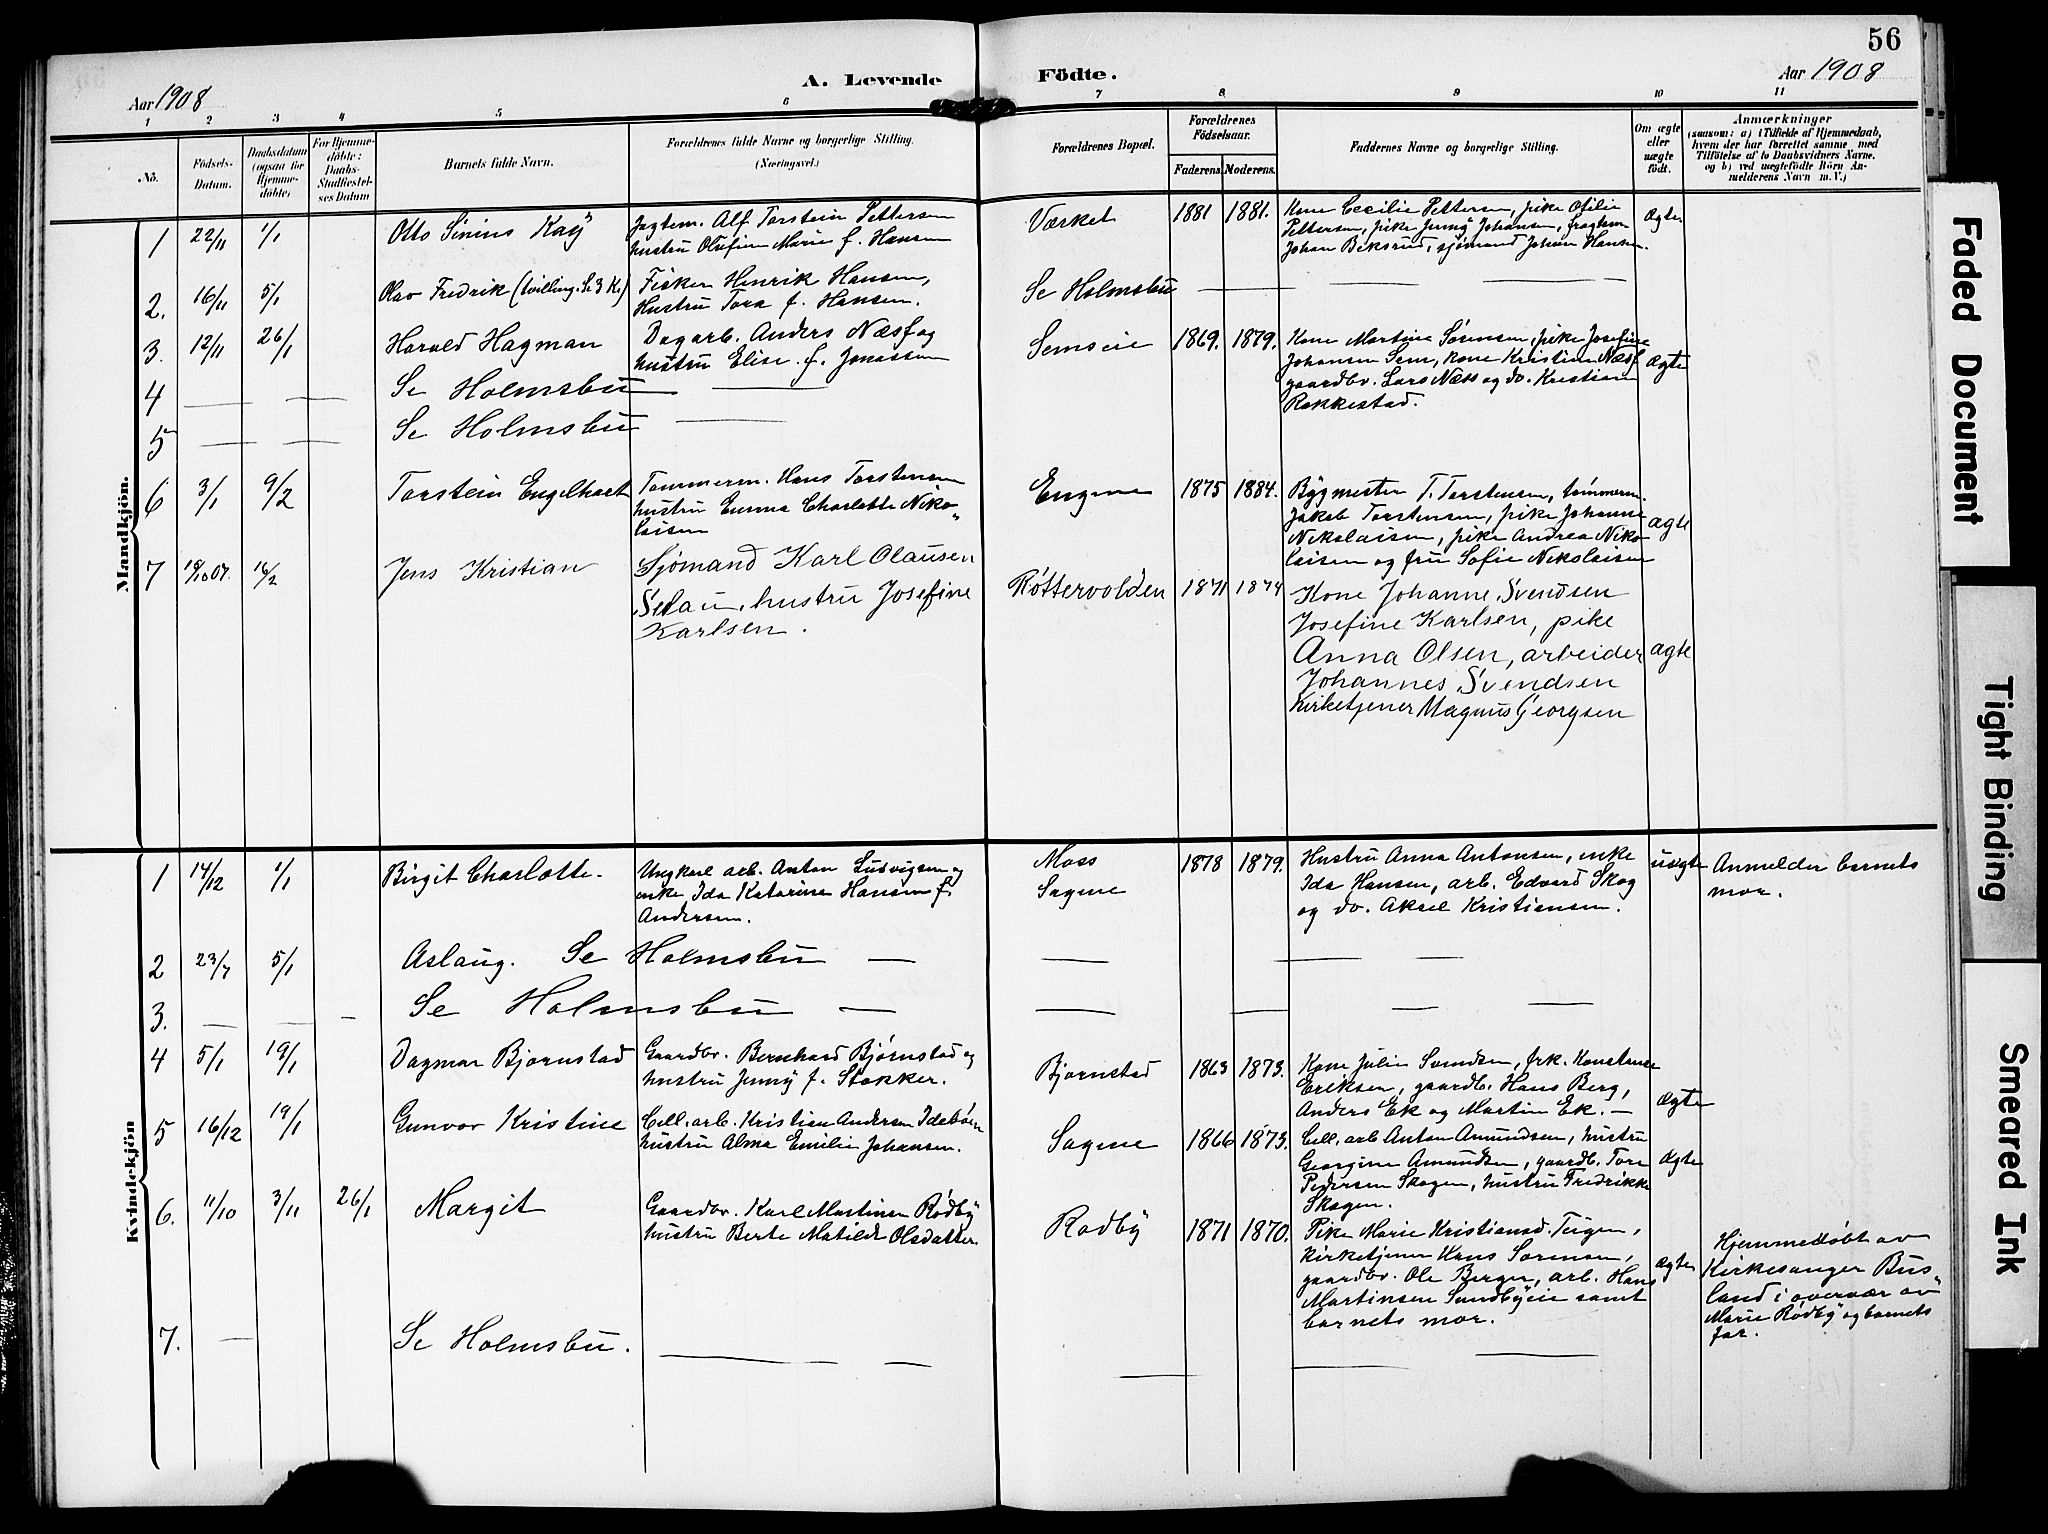 56
A. Levende Födte.
Aar 1908
Aar 1908
1 2 3 4 5 6 7 8 9 10 11
No.
Födsels-Datum.
Daabsdatum (ogsaa for Hjemmedöbte)
For Hjemmedöbte: Daabs-Stadfæstelses Datum
Barnets fulde Navn.
Forældrenes fulde Navne og borgerlige Stilling. (Næringsvei.)
Forældrenes Bopæl.
Forældrenes Födselsaar.
Faderens Moderens.
Faddernes Navne og borgerlige Stilling.
Om ægte eller uægte födt.
Anmærkninger
(saasom: a) i Tilfælde af Hjemmedaab, hvem der har forrettet samme, med Tilföielse af to Daabsvidners Navne, og b) ved uægtefödte Börn Anmelderens Navn m. V.)
Mandkjön.
1 22/11 1/1 Otto Sinius Kay
Jagtem. Alf Torstein Pettersen
hustru Olufine Marie f. Hansen
Værket 1881 1881.
Kone Cecilie Pettersen, pike Otilie
Pettersen, pike Jenny Johansen, fragtem.
Johan Beksrud, sjømand Johan Hansen.
Ægte.
2. 16/11 5/1 Olav Fredrik (tvilling. Se 3 K.)
Fisker Henrik Hansen,
Hustru Tora f. Hansen.
Se Holmsbu
3. 12/11 26/1 Harald Hagman
Dagarb. Anders Næss og
hustru Elise f. Jonassen
Semseie 1869. 1879.
Kone Martine Sørensen, pike Josefine
Johansen Sem, kone Kristine Næss
gaardbr. Lars Næss og do. Kristian
Rakkestad.
Ægte
4 Se Holmsbu
5 Se Holmsbu
6 3/1 9/2 Torstein Engelhart
Tømmerm. Hans Torstensen
hustru Emma Charlotte Niko-
laisen
Engene 1875 1884.
Bygmester T. Torstensen, tømmerm.
Jakob Torstensen, pike Johanne
Nikolaisen, pike Andrea Niko-
laisen og fru Sofie Nikolaisen
ægte
7 18/10 07. 16/2 Jens Kristian
Sjømand Karl Olausen
Selau, hustru Josefine
Karlsen.
Røttervolden 1871 1874
Kone Johanne Svendsen
Josefine Karlsen, pike
Anna Olsen, arbeider
Johannes Svendsen
Kirketjener Magnus Georgsen
ægte
Kvindekjön
1 14/12 1/1 Birgit Charlotte.
Ungkarl arb. Anton Ludvigsen og
enke Ida Katarina Hansen f.
Andersen.
Moss
Sagene
1878 1879.
Hustru Anna Antonsen, enke
Ida Hansen, arb. Edvard Skog
og do. Aksel Kristiansen.
uægte
Anmelder barnets
mor.
2 23/7 5/1 Aslaug. Se Holmsbu
3. Se Holmsbu
4 5/1 19/1 Dagmar Bjørnstad
Gaardbr. Bernhard Bjørnstad og
hustru Jenny f. Stokker.
Bjørnstad 1863 1873.
Kone Julie Svendsen, frk. Konstanse
Eriksen, gaardb. Hans Berg,
Anders Ek og Martin Ek.
Ægte
5 16/12 19/1 Gunvor Kristine
Cell. arb. Kristian Andersen Idebøen
hustru Alma Emilie Johansen.
Sagene 1866 1873.
Cell. arb Anton Amundsen, hustru
Georgine Amundsen, gaardb. Tore
Pedersen Skogen, hustru Fredrikke
Skogen.
Ægte
6. 11/10 3/11 26/1 Margit
Gaardbr. Karl Martinsen Rødby
hustru Berte Matilde Olsdatter.
Rødby 1871 1870.
Pike Marie Kristiansd. Teigen,
kirketjener Hans Sørensen,
gaardbr. Ole Bergen, arb. Hans
Martinsen Sundbyeie samt
barnets mor.
Ægte
Hjemmedøbt av
Kirkesanger Bus-
land i overvær av
Marie Rødby og barnets
far.
7. Se Holmsbu.
Faded Document
Tight Binding
Smeared Ink